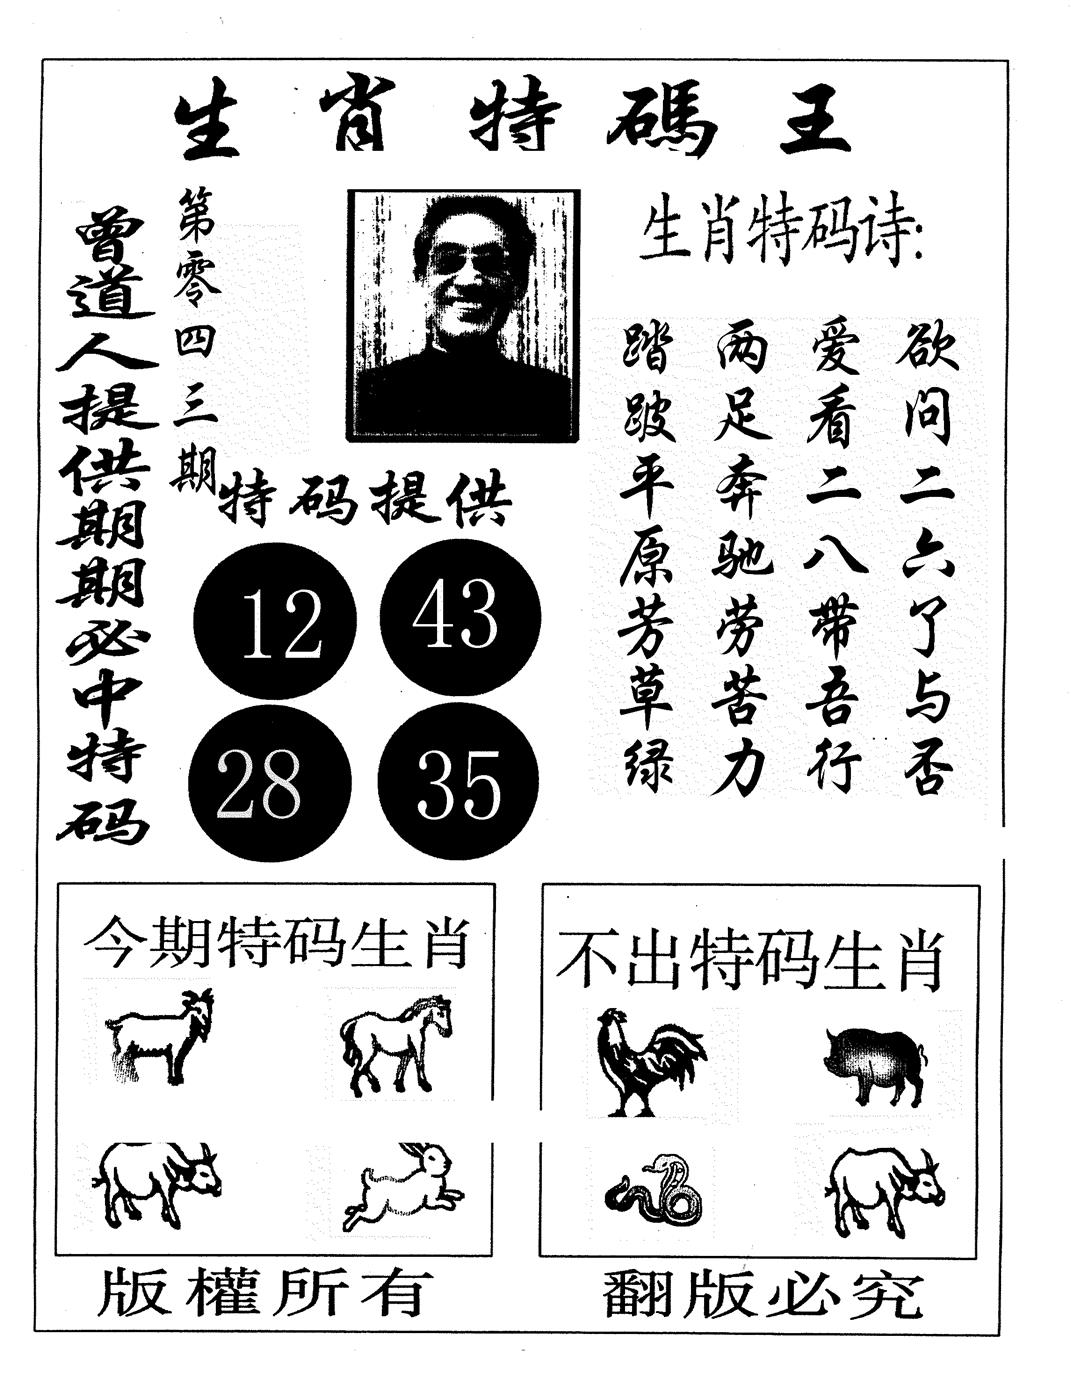 生肖特碼王
曾道人提供期期必中特码
第零四三期
生肖特码诗:
欲问二六了与否
爱看二八带吾行
两足奔驰劳苦力
踏跛平原芳草绿
特码提供
12 43
28 35
今期特码生肖
不出特码生肖
版權所有
翻版必究